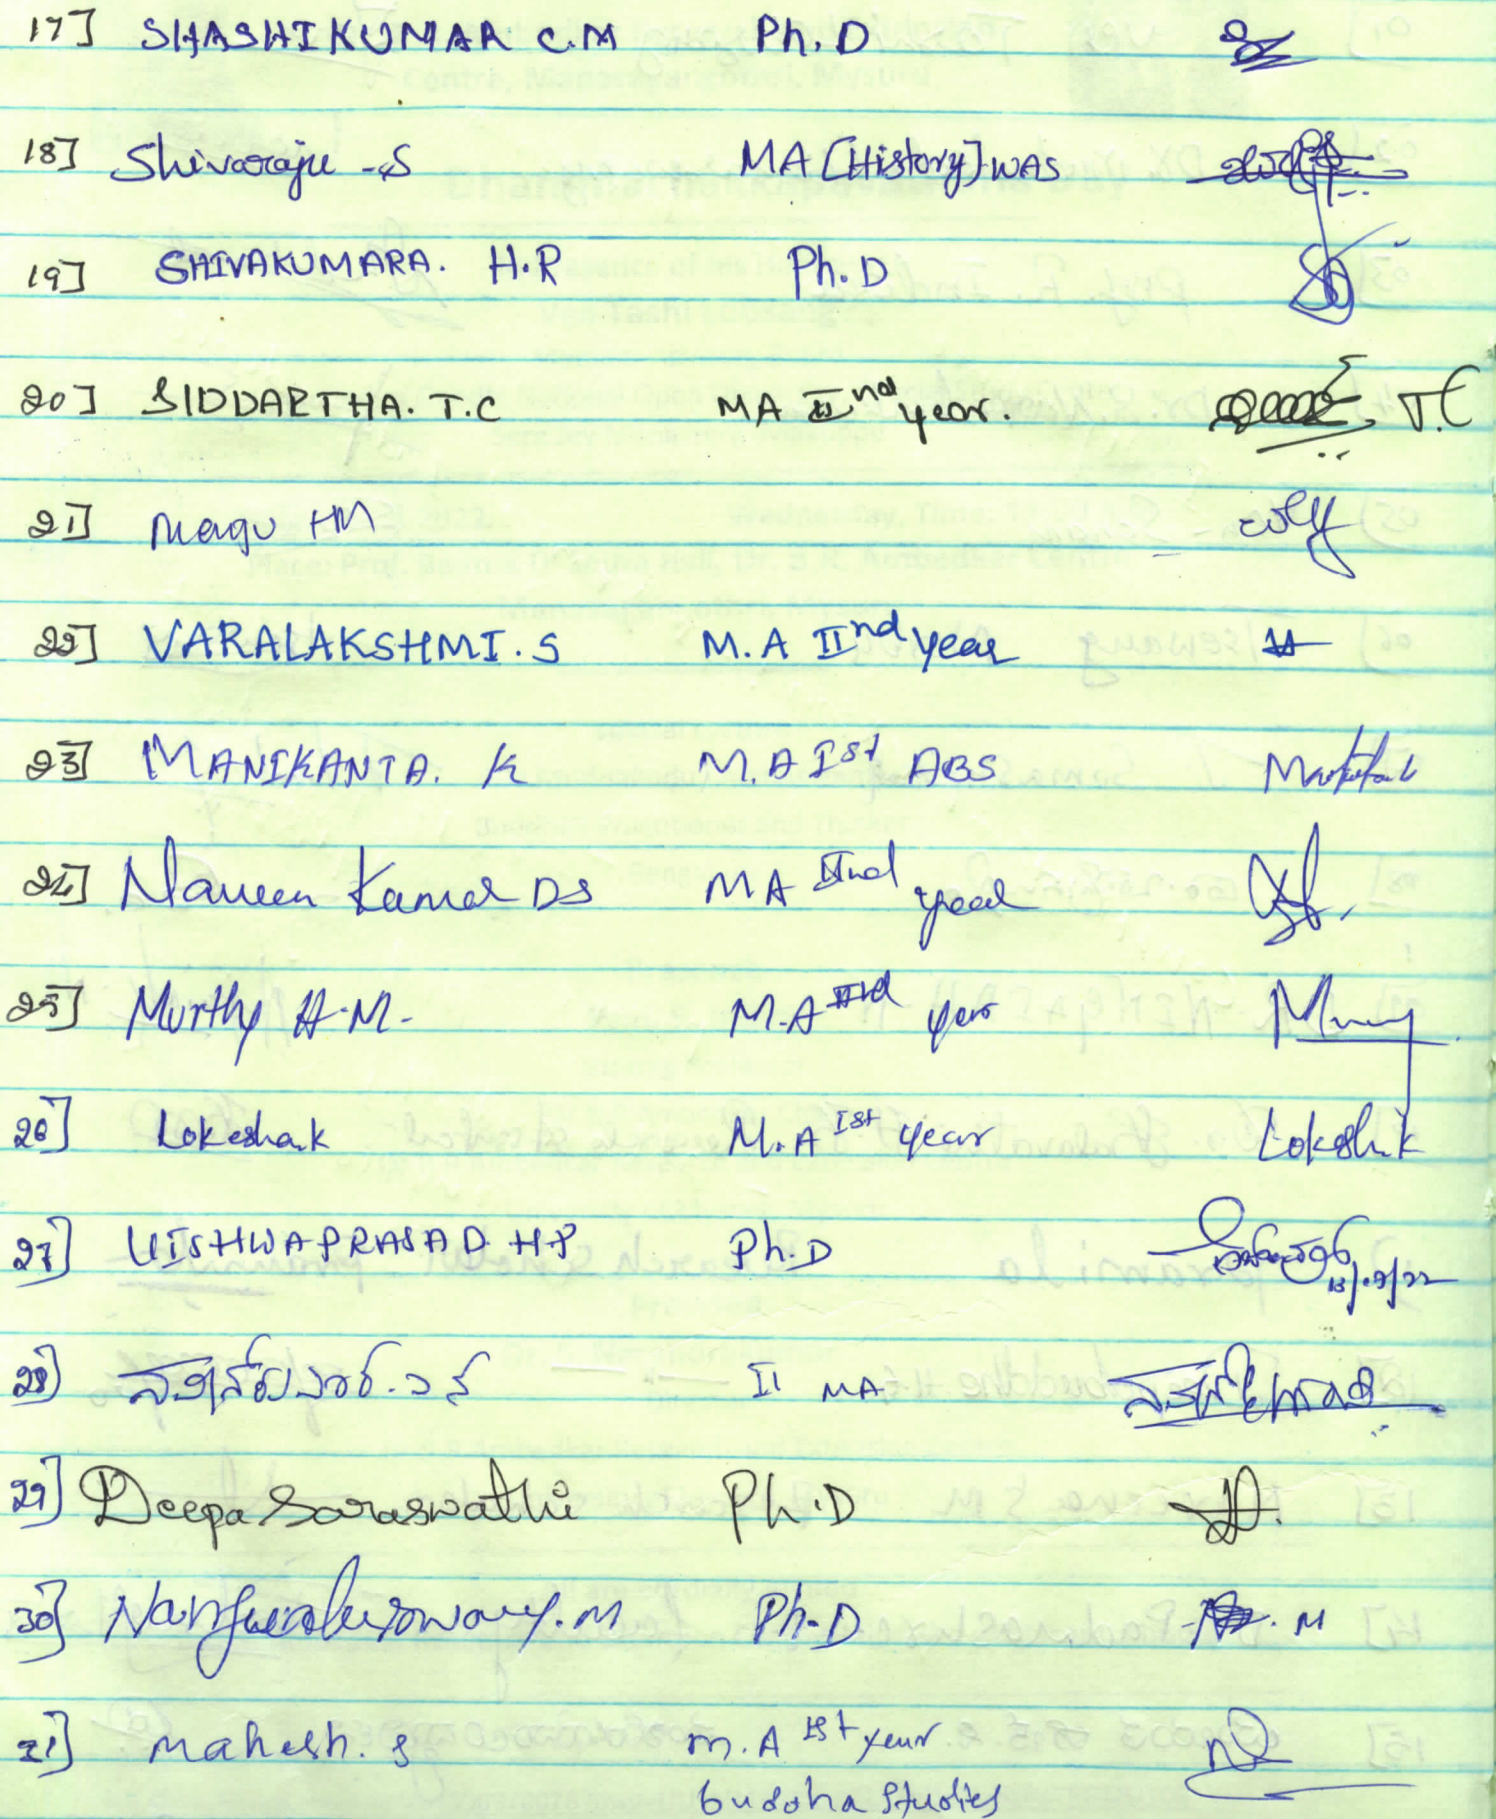 17] SHASHIKUMAR C.M Ph.D
18] Shivaraju -S MA [History] WAS
19] SHIVAKUMARA. H.R Ph.D
20] SIDDARTHA. T.C MA IInd year. T.C
21] HM
22] VARALAKSHMI. S M.A IInd year
23] MANIKANTA. K M.A Ist ABS
24] Naveen Kumar DS MA IInd year
25] Murthy H.M. M.A year
26] Lokesha.k M.A Ist year Lokesh.k
27] VISHWAPRASAD H.P Ph.D
28] II MA
29] Deepa Saraswathi Ph.D
30] Nanjundaswamy.M Ph.D M
31] Mahesh. S M.A Ist year
buddha Studies